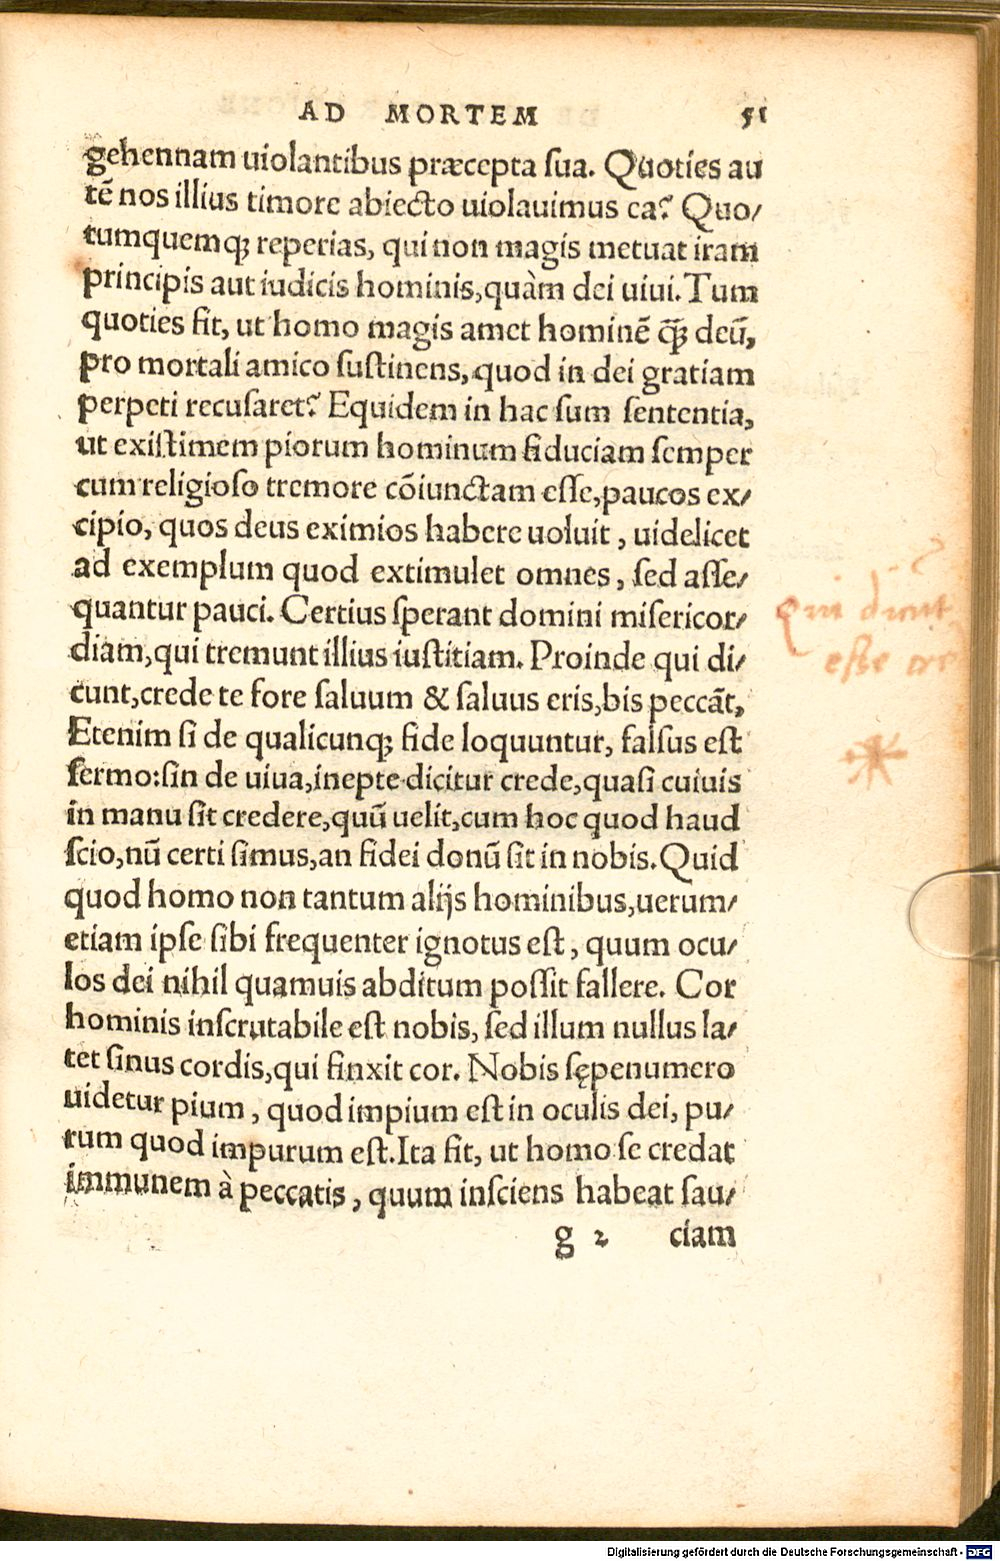 AD MORTEM 51
gehennam uiolantibus præcepta sua. Quoties au
tẽ nos illius timore abiecto uiolauimus ea? Quo/
tumquemq; reperias, qui non magis metuat iram
principis aut iudicis hominis,quàm dei uiui. Tum
quoties fit, ut homo magis amet hominẽ q̃; deũ,
pro mortali amico sustinens, quod in dei gratiam
perpeti recusaret? Equidem in hac sum sententia,
ut existimem piorum hominum fiduciam semper
cum religioso tremore cõiunctam esse,paucos ex/
cipio, quos deus eximios habere uoluit , uidelicet
ad exemplum quod extimulet omnes , sed asse/
quantur pauci. Certius sperant domini misericor/
diam,qui tremunt illius iustitiam. Proinde qui di/
cunt,crede te fore saluum & saluus eris,bis peccãt,
Etenim si de qualicunq; fide loquuntur, falsus est
sermo:sin de uiua,inepte dicitur crede,quasi cuiuis
in manu sit credere,quũ uelit,cum hoc quod haud
scio,nũ certi simus,an fidei donũ sit in nobis. Quid
quod homo non tantum alijs hominibus,uerum/
etiam ipse sibi frequenter ignotus est , quum ocu/
los dei nihil quamuis abditum possit fallere. Cor
hominis inscrutabile est nobis, sed illum nullus la/
tet sinus cordis,qui finxit cor. Nobis sępenumero
uidetur pium , quod impium est in oculis dei, pu/
rum quod impurum est. Ita fit, ut homo se credat
immunem à peccatis , quum insciens habeat sau/
g 2 ciam
Qui dicunt
esse
Digitalisierung gefördert durch die Deutsche Forschungsgemeinschaft - DFG